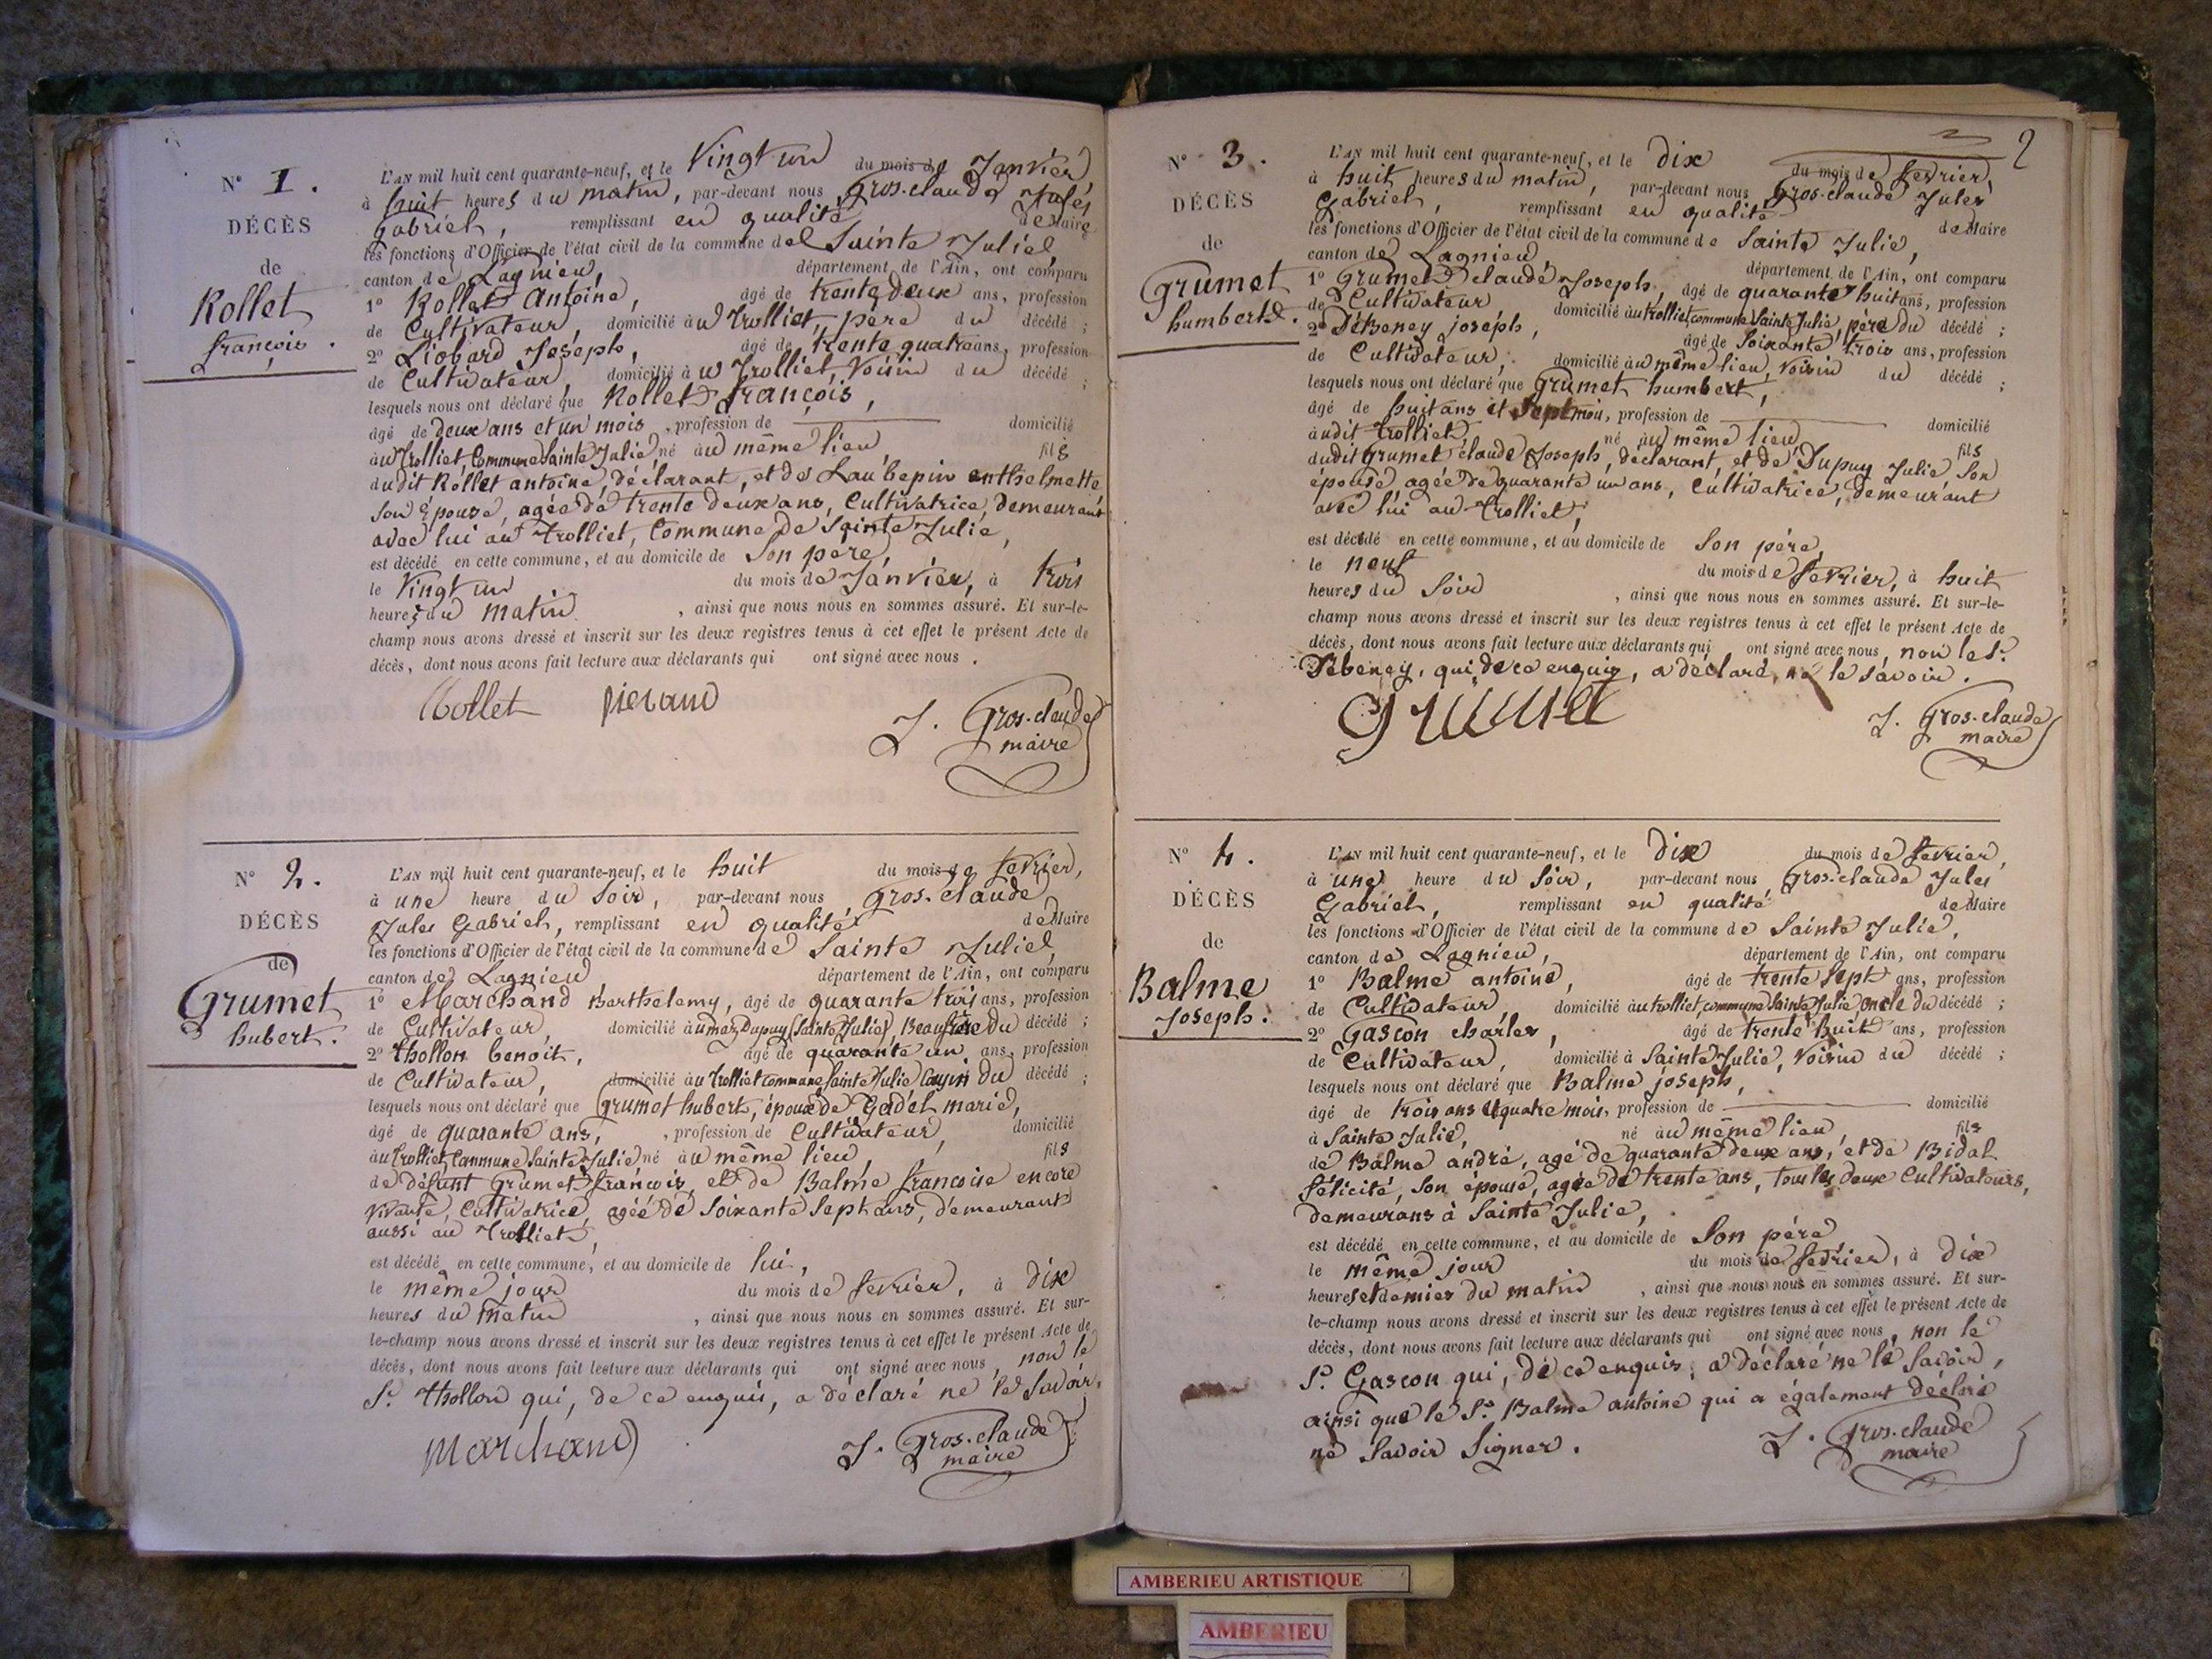 N° 1.
DÉCÈS
de
Rollet
françois.
L'AN mil huit cent quarante-neuf, et le Vingt un du mois de Janvier,
à huit heures du matin, par-devant nous Gros-claude Jules
Gabriel, remplissant en qualité de Maire
les fonctions d'Officier de l'état civil de la commune de Sainte Julie,
canton de Lagnieu, département de l'Ain, ont comparu
1° Rollet Antoine, âgé de trente deux ans, profession
de Cultivateur, domicilié au Trolliet, père du décédé ;
2° Liobard Joseph, âgé de trente quatre ans, profession
de Cultivateur, domicilié au Trolliet, Voisin du décédé ;
lesquels nous ont déclaré que Rollet françois,
âgé de deux ans et un mois, profession de domicilié
au Trolliet, Commune Sainte Julie, né au même lieu fils
dudit Rollet antoine, déclarant, et de Laubepin anthelmette
son épouse, agée de trente deux ans, Cultivatrice, demeurant
avec lui au Trolliet, Commune de Sainte Julie,
est décédé en cette commune, et au domicile de Son père,
le Vingt un du mois de Janvier, à trois
heures du matin, ainsi que nous nous en sommes assuré. Et sur-le-
champ nous avons dressé et inscrit sur les deux registres tenus à cet effet le présent Acte de
décès, dont nous avons fait lecture aux déclarants qui ont signé avec nous.
Rollet
J. Gros-claude
maire
N° 2.
DÉCÈS
de
Grumet
hubert.
L'AN mil huit cent quarante-neuf, et le huit du mois de fevrier,
à une heure du Soir, par-devant nous Gros-claude
Jules Gabriel, remplissant en qualité de Maire
les fonctions d'Officier de l'état civil de la commune de Sainte Julie,
canton de Lagnieu département de l'Ain, ont comparu
1° Marchand Barthelemy, âgé de quarante trois ans, profession
de Cultivateur, domicilié au maz Dupuy (Sainte Julie), Beaufrère du décédé ;
2° thollon benoit, âgé de quarante un ans, profession
de Cultivateur, domicilié au Trolliet commune Sainte Julie Cousin du décédé ;
lesquels nous ont déclaré que Grumet hubert, époux de Gadel marie,
âgé de quarante ans, profession de Cultivateur, domicilié
au Trolliet, Commune Sainte Julie né au même lieu, fils
de défunt Grumet françois, et de Balme françoise encore
vivante, Cultivatrice, agée de Soixante Sept ans, demeurant
aussi au Trolliet,
est décédé en cette commune, et au domicile de lui,
le même jour du mois de fevrier, à dix
heures du matin, ainsi que nous nous en sommes assuré. Et sur-
le-champ nous avons dressé et inscrit sur les deux registres tenus à cet effet le présent Acte de
décès, dont nous avons fait lecture aux déclarants qui ont signé avec nous, non le
Sr. thollon qui, de ce enquis, a déclaré ne le Savoir.
Marchand
J. Gros-claude
maire
2
N° 3.
DÉCÈS
de
Grumet
humbert.
L'AN mil huit cent quarante-neuf, et le dix du mois de fevrier,
à huit heures du matin, par-devant nous Gros-claude Jules
Gabriel, remplissant en qualité de Maire
les fonctions d'Officier de l'état civil de la commune de Sainte Julie,
canton de Lagnieu, département de l'Ain, ont comparu
1° Grumet claude Joseph, âgé de quarante huit ans, profession
de Cultivateur domicilié au trolliet, commune Sainte Julie, père du décédé ;
2° Débeney joseph, âgé de Soixante trois ans, profession
de Cultivateur, domicilié au même lieu, voisin du décédé ;
lesquels nous ont déclaré que Grumet humbert,
âgé de huit ans et Sept mois, profession de domicilié
audit trolliet, né au même lieu fils
dudit Grumet claude Joseph, déclarant, et de Dupuy Julie, Son
épouse agée de quarante un ans, Cultivatrice, demeurant
avec lui au Trolliet,
est décédé en cette commune, et au domicile de Son père,
le neuf du mois de fevrier, à huit
heures du Soir, ainsi que nous nous en sommes assuré. Et sur-le-
champ nous avons dressé et inscrit sur les deux registres tenus à cet effet le présent Acte de
décès, dont nous avons fait lecture aux déclarants qui ont signé avec nous, non le Sr.
Débeney, qui, de ce enquis, a déclaré, ne le savoir.
Grumet
J. Gros-claude
maire
N° 4.
DÉCÈS
de
Balme
Joseph.
L'AN mil huit cent quarante-neuf, et le Dix du mois de fevrier,
à une heure du Soir, par-devant nous Gros-claude Jules
Gabriel, remplissant en qualité de Maire
les fonctions d'Officier de l'état civil de la commune de Sainte Julie,
canton de Lagnieu, département de l'Ain, ont comparu
1° Balme antoine, âgé de trente Sept ans, profession
de Cultivateur, domicilié au trolliet, commune Sainte Julie, oncle du décédé ;
2° Gascon charles, âgé de trente huit ans, profession
de Cultivateur, domicilié à Sainte Julie, Voisin du décédé ;
lesquels nous ont déclaré que Balme joseph,
âgé de trois ans et quatre mois, profession de domicilié
à Sainte Julie, né au même lieu, fils
de Balme andré, agé de quarante deux ans, et de Bidal
félicité, Son épouse, agée de trente ans, tous les deux Cultivateurs,
demeurans à Sainte Julie,
est décédé en cette commune, et au domicile de Son père
le même jour du mois de fevrier, à dix
heures et demies du matin, ainsi que nous nous en sommes assuré. Et sur-
le-champ nous avons dressé et inscrit sur les deux registres tenus à cet effet le présent Acte de
décès, dont nous avons fait lecture aux déclarants qui ont signé avec nous, non le
Sr. Gascon qui, de ce enquis, a déclaré ne le Savoir,
ainsi que le Sr. Balme antoine qui a également déclaré
ne Savoir Signer.
J. Gros-claude
maire
AMBERIEU ARTISTIQUE
AMBERIEU